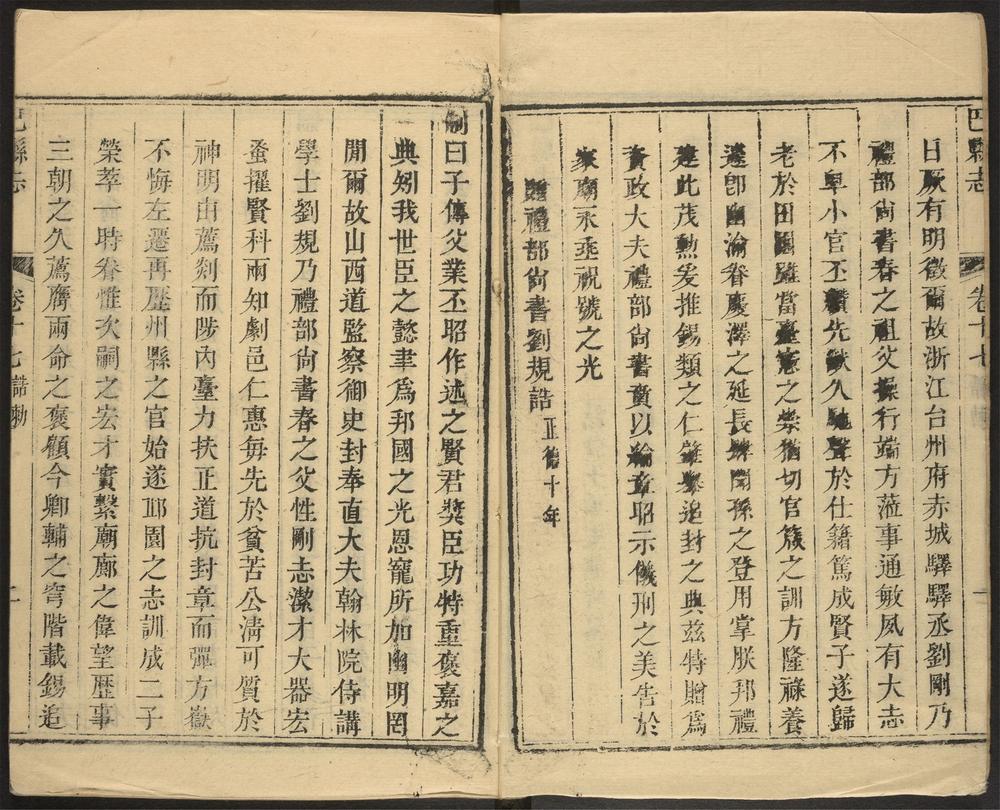 巴縣志 卷十七 誥勅 一
曰厥有明徵爾故浙江台州府赤城驛驛丞劉剛乃
禮部尚書春之祖父操行端方蒞事通敏夙有大志
不卑小官丕纘先猷久馳聲於仕籍篤成賢子遂歸
老於田園雖當臺憲之榮猶切官箴之訓方隆祿養
遽卽幽淪眷慶澤之延長肆聞孫之登用掌朕邦禮
建此茂勲爰推錫類之仁聿舉追封之典茲特贈爲
資政大夫禮部尚書賁以綸章昭示儀刑之美告於
家廟永垂祝號之光
贈禮部尚書劉規誥正德十年
制曰子傳父業丕昭作述之賢君奬臣功特重褒嘉之
典矧我世臣之懿聿爲邦國之光恩寵所加幽明罔
閒爾故山西道監察御史封奉直大夫翰林院侍講
學士劉規乃禮部尚書春之父性剛志潔才大器宏
蚤擢賢科兩知劇邑仁惠每先於貧苦公淸可質於
神明由薦剡而陟內臺力扶正道抗封章而彈方嶽
不悔左遷再歷州縣之官始遂邱園之志訓成二子
榮萃一時眷惟次嗣之宏才實繫廟廊之偉望歷事
三朝之久薦膺兩命之褒顧今卿輔之穹階載錫追
巴縣志 卷十七 誥勅 二